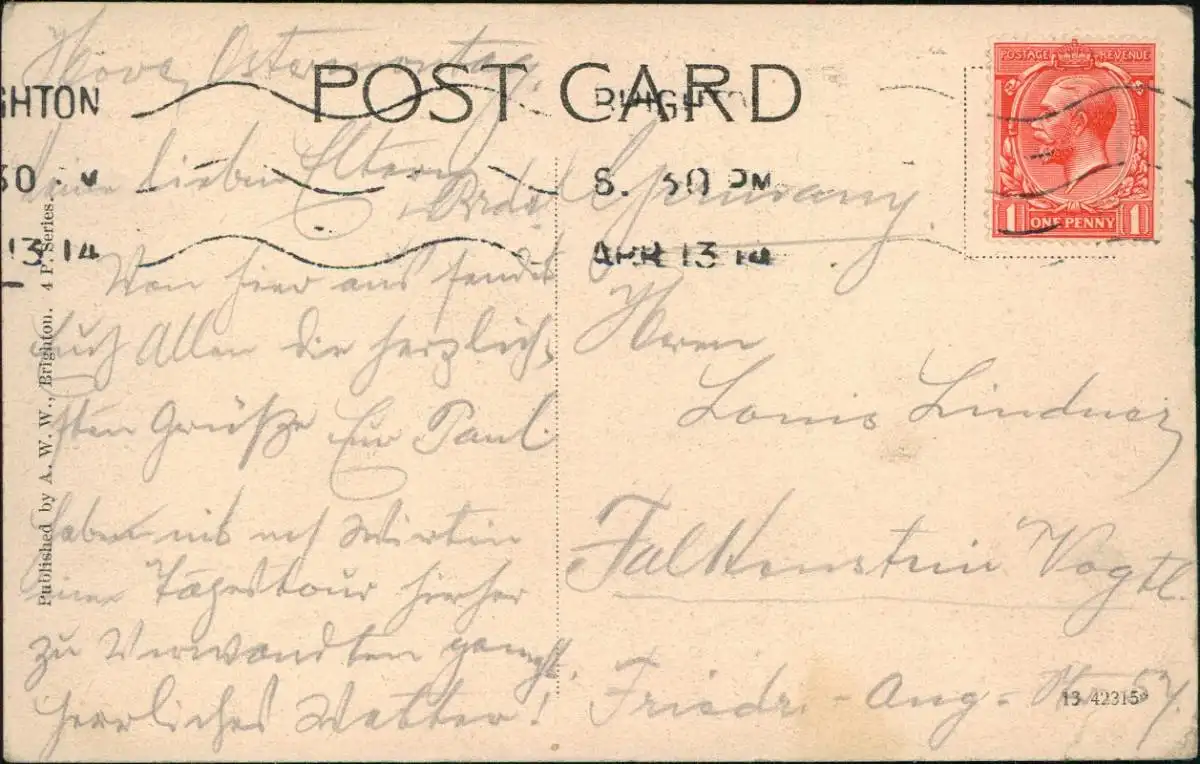 POST CARD
GHTON
30 PM
13 14
BRIGHTON
8. 30 PM
APR 13 14
POSTAGE REVENUE
1 ONE PENNY 1
Hove, Ostermontag.
Meine lieben Eltern
Von hier aus sendet
Euch Allen die herzlich-
sten Grüße Eur Paul.
Haben mit
einen Tagestour hierher
zu Verwandten gemacht.
herrliches Wetter!
Germany.
Herrn
Louis Lindner,
Falkenstein Vogtl.
Friedr.-Aug-Str. 57.
Published by A. W. W., Brighton. 4 P. Series.
13 42315